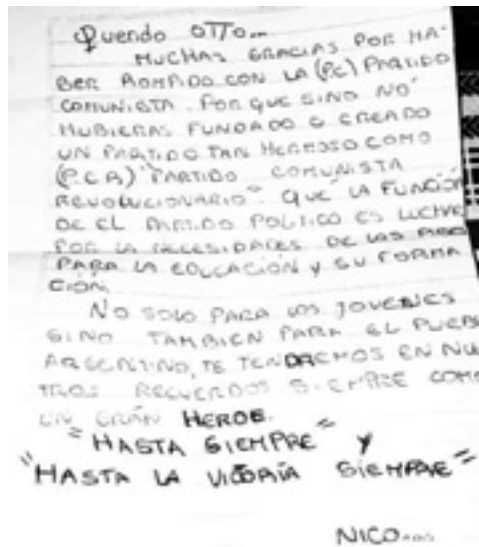 Querido OTTO...
MUCHAS GRACIAS POR HA-
BER ROMPIDO CON LA (PC) PARTIDO
COMUNISTA. PORQUE SINO NO
HUBIERAS FUNDADO O CREADO
UN PARTIDO TAN HERMOSO COMO
(P.C.R) "PARTIDO COMUNISTA
REVOLUCIONARIO". QUE LA FUNCIÓN
DE EL PARTIDO POLITICO ES LUCHAR
POR LA NECESIDADES DE LAS
PARA LA EDUCACIÓN Y SU FORMA
CIÓN.
NO SOLO PARA LOS JOVENES
SINO TAMBIEN PARA EL PUEB
ARGENTINO, TE TENDREMOS EN NUE
TROS RECUERDOS SIEMPRE COMO
UN GRÁN HEROE.
"HASTA SIEMPRE" Y
"HASTA LA VICTORIA SIEMPRE"
NICO....